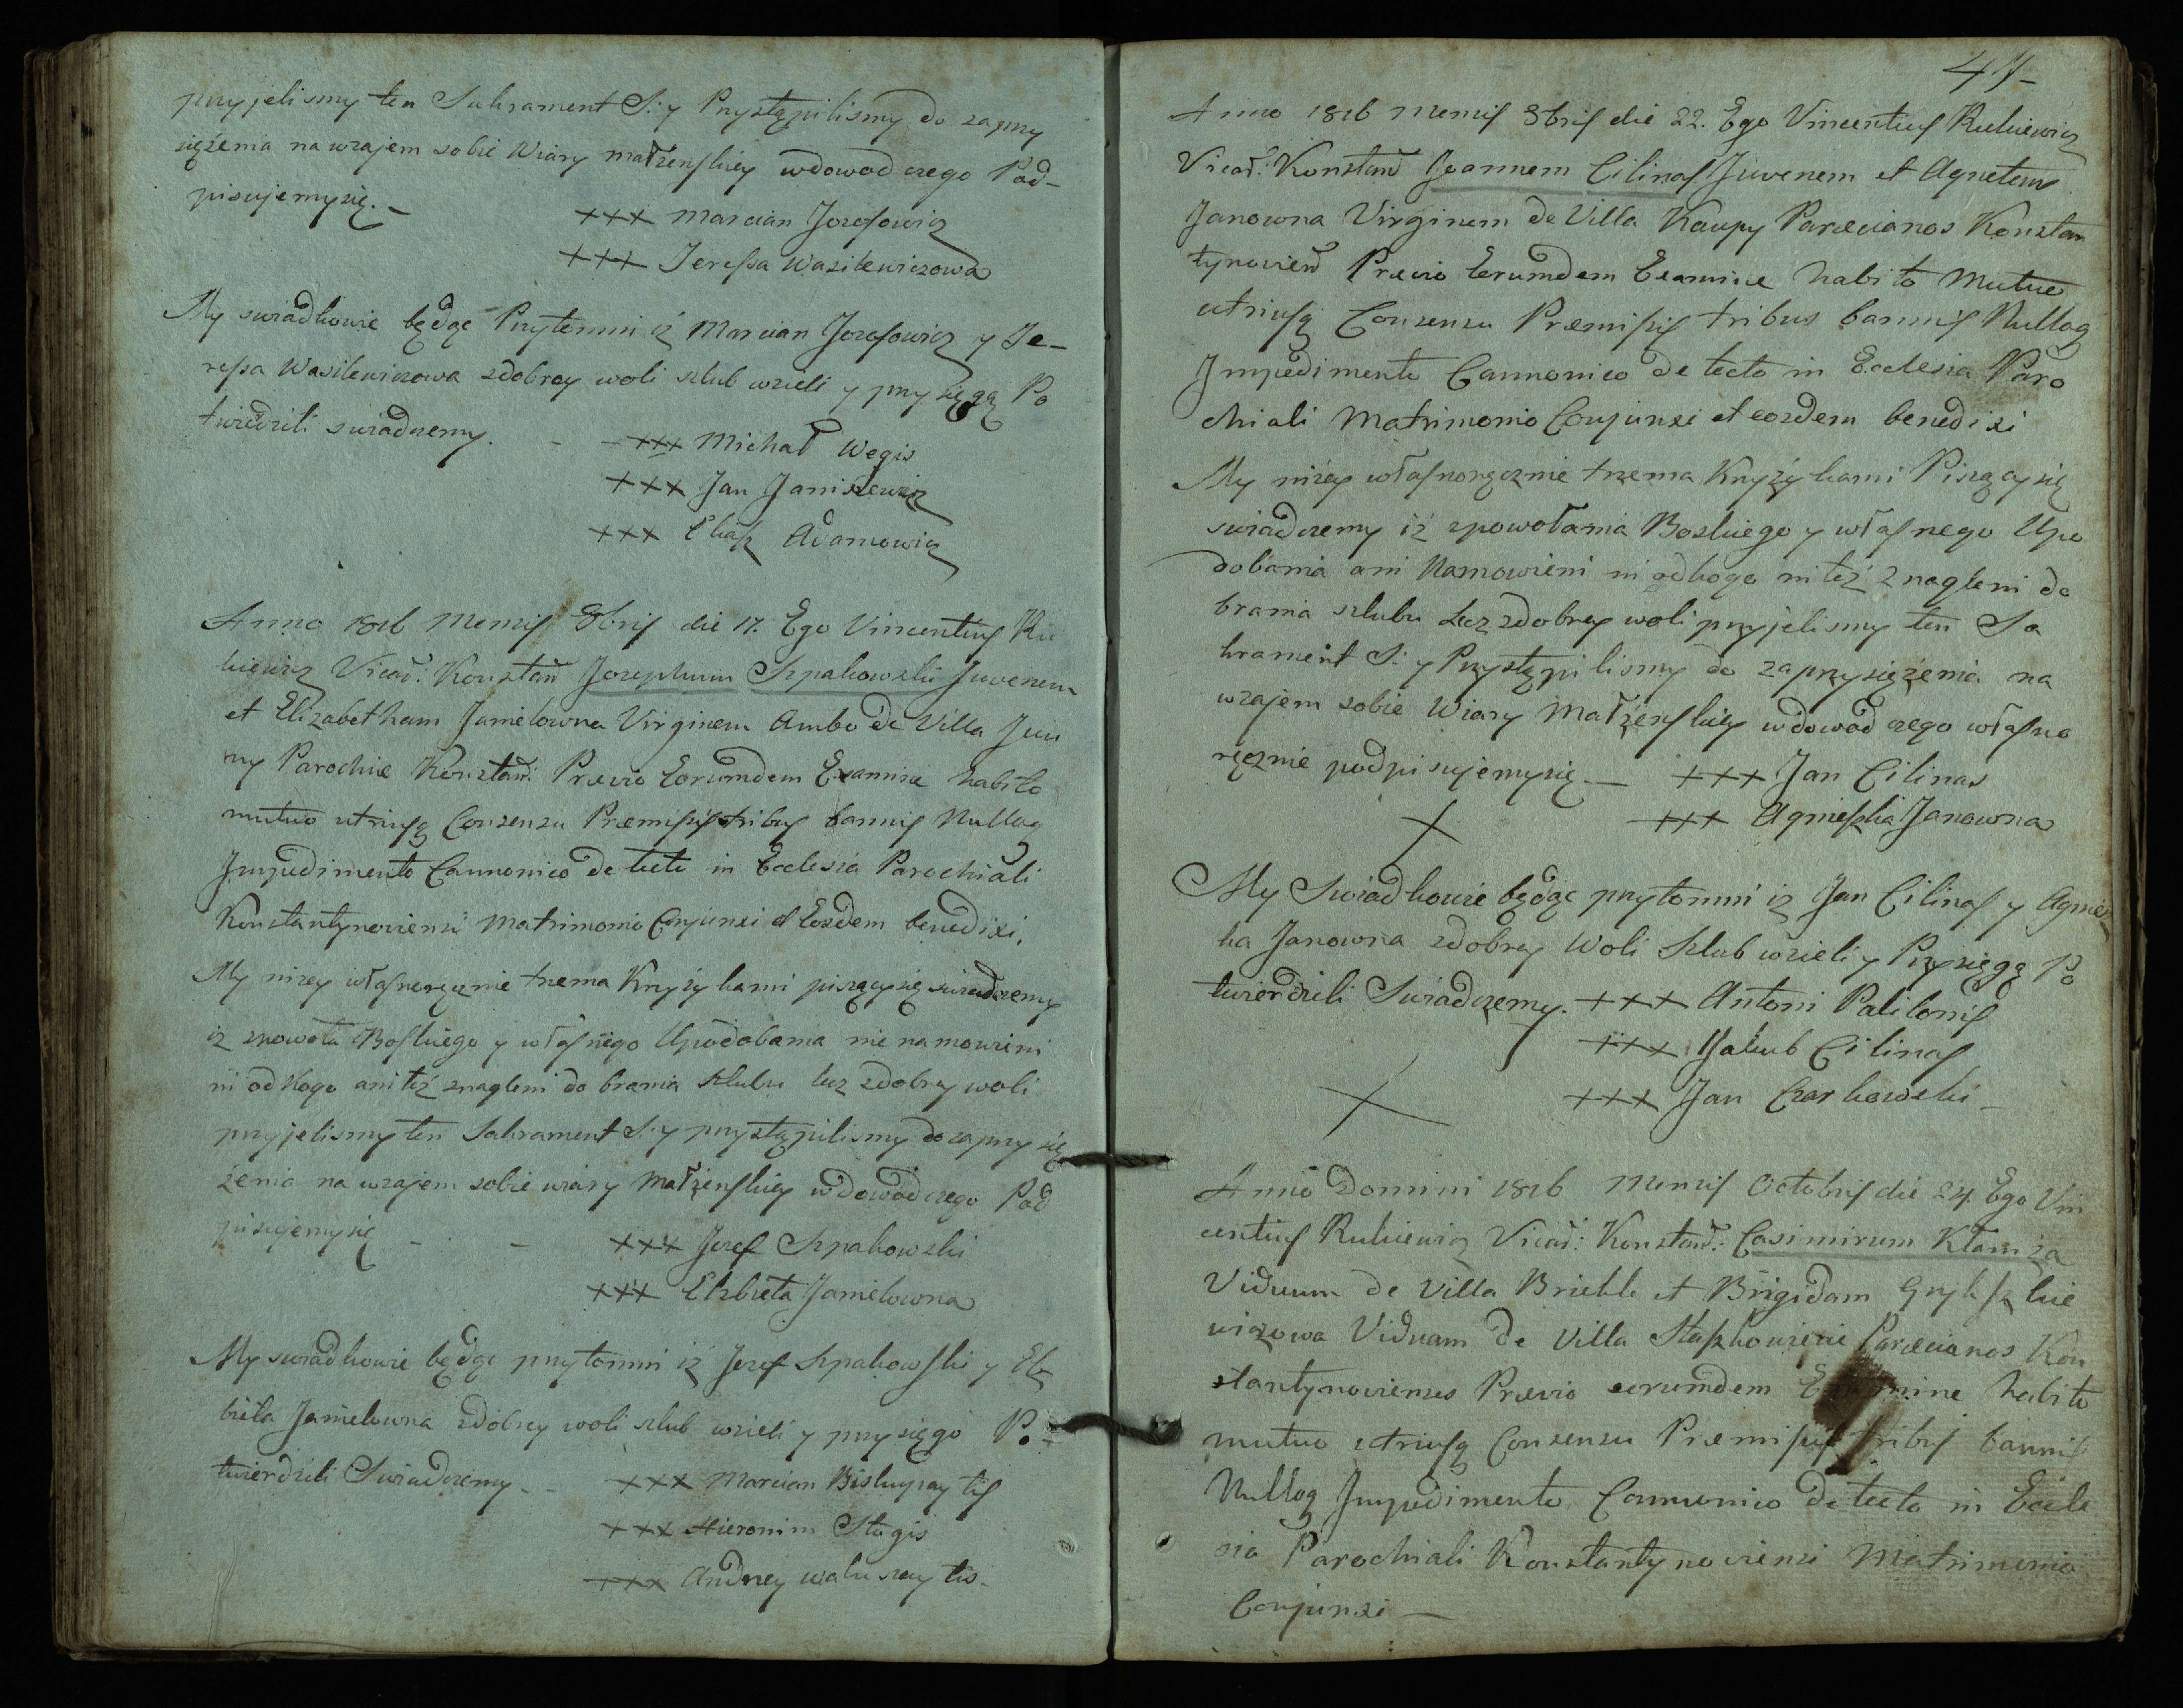 przyjelismy ten Sakrament S: y Przystąpilismy do zaprzy
siężenia nawzajem sobie Wiary małżenskiey wdowod czego Pod-
pisujemysię. –
+++ Marcian Jozefowicz
+++ Teressa Wasilewiczowa
My swiadkowie będąc Przytomni iż Marcian Jozefowicz y Te-
ressa Wasilewiczowa zdobrey woli szlub wzieli y przysięgą Po
twierdzili swiadczemy. - - +++ Michał Wegis
+++ Jan Janiszewicz
+++ Eliasz Adamowicz
Anno 1816 Mensis 8bris die 17. Ego Vincentius Ru
kiewicz Vicar: Konstan Josephum Szpakowski Juvenem
et Elizabetham Jamelowna Virginem Ambo de Villa Juu
ny Parochiæ Konstan: Prævio Eorumdem Examine habito
mutuo utriusq Consensu Præmissis tribus bannis Nulloq
Impedimento Cannonico detecto in Ecclesia Parochiali
Konstantynoviensi Matrimonio Conjunxi et Eosdem benedixi.
My nizey własnoręcznie trzema Krzyżykami piszącysię swiadczemy
iz zpowoła Boskiego y własnego Upodobania nie namowieni
ni od Kogo ani też znagleni do brania szlubu lecz zdobrey woli
przyjelismy ten Sakrament S: y przystąpilismy do zaprzysię
żenia nawzajem sobie wiary Małżenskiey wdowod czego Pod
pisujemysię - - +++ Jozef Szpakowski
+++ Elzbieta Jamelowna
My swiadkowie będąc przytomni iż Jozef Szpakowski y Elz
bieta Jamelowna zdobrey woli szlub wzieli y przysięgo Po-
twierdzili Swiadczemy - - +++ Marcian Biskupaytis
+++ Hieronim Stogis
+++ Andrzey waluszaytis -
47-
Anno 1816 Mensis 8bris die 22. Ego Vincentius Rukiewicz
Vicar: Konstan Joannem Cilinas Juvenem et Agnetem
Janowna Virginem de Villa Kaupy Paræcianos Konstan
tynovien Prævio Eorumdem Examine habito Mutuo
utriusq Consensu Præmissis tribus bannis Nulloq
Impedimento Cannonico detecto in Ecclesia Paro
chiali Matrimonio Conjunxi et eosdem benedixi
My niżey własnoręcznie trzema Krzyżykami Piszącysię
swiadczemy iż zpowołania Boskiego y własnego Upo
dobania ani Namowieni ni odkogo ni też znagleni do
brania szlubu Lecz zdobrey woli przyjelismy ten Sa
krament S: y Przystąpilismy do zaprzysiężenia na
wzajem sobie Wiary Małżenskiey wdowod czego własno
ręcznie podpisujemysię. — +++ Jan Cilinas
+++ Agnieszka Janowna
My Swiadkowie będąc przytomni iz Jan Cilinas y Agniesz
ka Janowna zdobrey Woli Szlub wzieli y Przysięgą Po
twierdzili Swiadczemy. +++ Antoni Palilonis
+++ Jakub Cilinas
+++ Jan Czarkowski -
Anno Domini 1816 Mensis Octobris die 24. Ego Vin
centius Rukiewicz Vicar: Konstan: Casimirum Klamża
Viduum de Villa Briekle et Brigidam Gryksz kie
wiczowa Viduam de Villa Staszkowiecie Paræcianos Kon
stantynovienses Prævio eorumdem Examine habito
mutuo utriusq Consensu Præmissis tribus bannis
Nulloq Impedimento Cannonico detecto in Eccle
sia Parochiali Konstantynoviensi Matrimonio
Conjunxi —